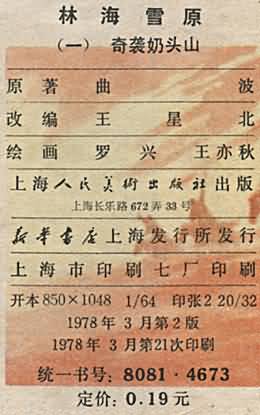 林海雪原
（一） 奇袭奶头山
原著 曲波
改编 王星北
绘画 罗兴 王亦秋
上海人民美術出版社出版
上海长乐路672弄33号
新华書店上海发行所发行
上海市印刷七厂印刷
开本850×1048 1/64 印张2 20/32
1978年3月第2版
1978年3月第21次印刷
统一书号：8081·4673
定价：0.19元